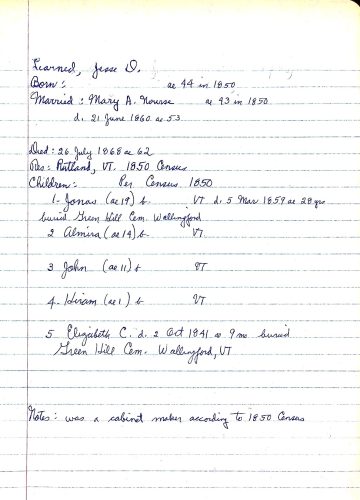 Learned, Jesse D.
Born: ae 44 in 1850
Married: Mary A. Nourse ae 43 in 1850
d. 21 June 1860 ae 53
Died: 26 July 1868 ae 62
Res: Rutland, VT. 1850 Census
Children: Per Census 1850
1. Jonas (ae 19) b VT d. 5 Mar 1859 ae 28 yrs
buried Green Hill Cem. Wallingford
2 Almira (ae 14) b. VT.
3 John (ae 11) b VT
4. Hiram (ae 1) b VT
5. Elizabeth C. d. 2 Oct 1841 ae 9 mo. buried
Green Hill Cem. Wallingford, VT
Notes: was a cabinet maker according to 1850 Census